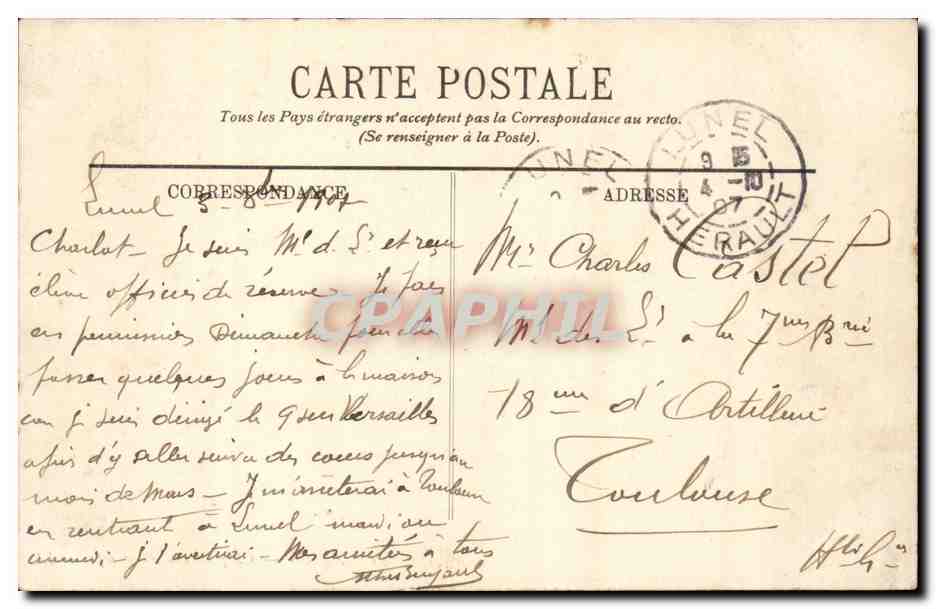 CARTE POSTALE
Tous les Pays étrangers n'acceptent pas la Correspondance au recto.
(Se renseigner à la Poste).
CORRESPONDANCE
Lunel 3-8-1907
Charlot - Je suis Ml. d. L. et reçu
élève officier de réserve. Je pars
en permission Dimanche pour aller
passer quelques jours à la maison
car je suis dirigé le 9 sur Versailles
afin d'y aller suivre des cours jusqu'au
mois de Mars - Je m'arrêterai à Toulouse
en rentrant à Lunel mardi ou
mercredi - Je t'avertirai - Mes amitiés à tous
ADRESSE
LUNEL
LUNEL
9 15
4 -10
07
HERAULT
Mr Charles Castel
Ml des Ls à la 7me Brie
18me d'Artillerie
Toulouse
CPAPHIL